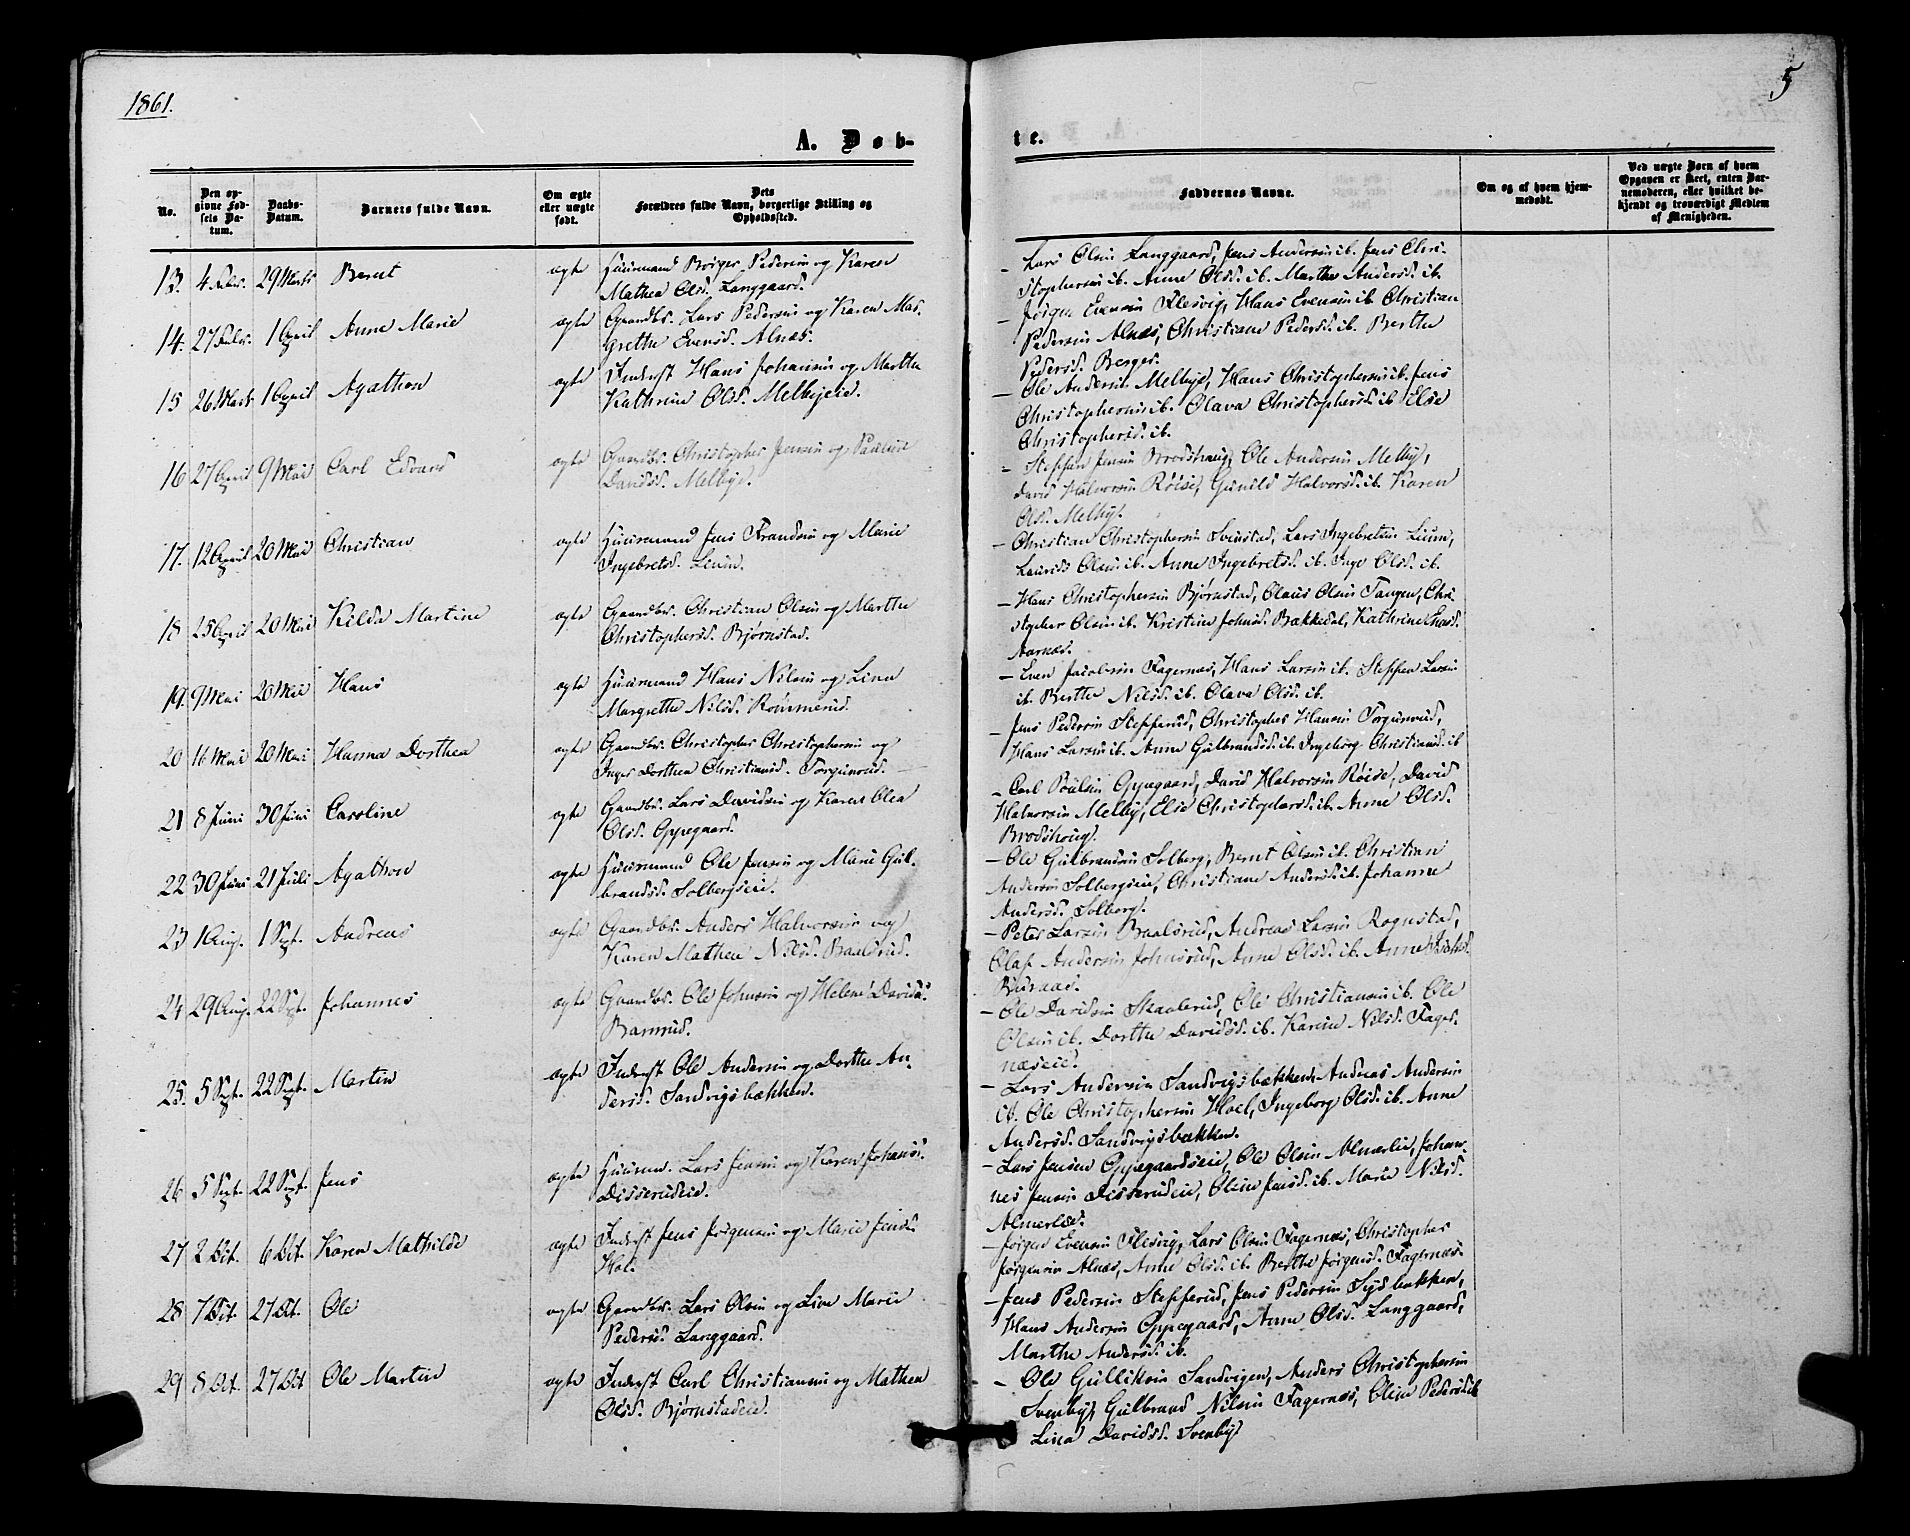 1861.
5
A. Døb-
te.
No.
Den op-
givne Fød-
sels Da-
tum.
Daabs-
Datum.
Barnets fulde Navn.
Om ægte
eller uægte
født.
Dets
Forældres fulde Navn, borgerlige Stilling og
Opholdssted.
Faddernes Navne.
Om og af hvem hjem-
medøbt.
Ved uægte Børn af hvem
Opgaven er skeet, enten Bar-
nemoderen, eller hvilket be-
kjendt og troværdigt Medlem
af Menigheden.
13. 4 Febr. 29 Marts Bernt ægte Huusmand Børger Pedersen og Karen
Mathea Olsd. Langgaard.
– Lars Olsen Langgaard, Jens Andersen ib. Jens Chri-
stophersen ib. Anne Olsd. ib. Marthe Andersd. ib.
14. 27 Febr. 1 April Anne Marie ægte Gaardbr. Lars Pedersen og Karen Mar-
grethe Evensd. Alnæs.
– Jørgen Evensen Flesvig, Hans Evensen ib. Christian
Pedersen Alnæs, Christiane Pedersd. ib. Berthe
Pedersd. Berger.
15 26 Marts 1 April Agathon ægte Inderst Hans Johansen og Marthe
Kathrine Olsd. Melbyeie.
– Ole Andersen Melbye, Hans Christophersen ib. Jens
Christophersen ib. Olava Christophersd. ib. Else
Christophersd. ib.
16 27 April 9 Mai Carl Edvard ægte Gaardbr. Christopher Jensen og Pauline
Davidsd. Melbye.
– Steffen Jensen Brodshaug, Ole Andersen Melby,
David Halvorsen Røise, Gunild Halvorsd. ib. Karen
Olsd. Melby.
17. 12 April 20 Mai Christian ægte Huusmand Jens Frandsen og Marie
Ingebretsd. Lium.
– Christian Christophersen Svenstad, Lars Ingebretsen Lium,
Laurits Olsen ib. Anne Ingebretsd. ib. Inge Olsd. ib.
18 25 April 20 Mai Kilda Martine ægte Gaardbr. Christian Olsen og Marthe
Christophersd. Bjørnstad.
– Hans Christophersen Bjørnstad, Olaus Olsen Tangen, Chri-
stopher Olsen ib. Kristine Johnsd. Bakkedal, Kathrine
Aarnæs.
19. 9 Mai 20 Mai Hans ægte Huusmand Hans Nilsen og Lina
Margrethe Nilsd. Rømmerud.
– Even Jacobsen Fagernæs, Hans Larsen ib. Steffen Larsen
ib. Berthe Nilsd. ib. Olava Olsd. ib.
20 16 Mai 20 Mai Hanna Dorthea ægte Gaardbr. Christopher Christophersen og
Inger Dorthea Christiansd. Torgunrud.
– Jens Pedersen Stefferud, Christopher Hansen Torgunrud,
Hans Larsen ib. Anne Gulbrandsd. ib. Ingeborg Christiansd. ib
21 8 Juni 30 Juni Caroline ægte Gaardbr. Lars Davidsen og Karen Olea
Olsd. Oppegaard.
– Carl Poulsen Oppegaard, David Halvorsen Røise, David
Halvorsen Melby, Else Christophersd. ib. Anne Olsd.
Brodshoug.
22 30 Juni 21 Juli Agathon ægte Huusmand Ole Jensen og Marie Gul-
brandsd. Solbergseie.
– Ole Gulbrandsen Solberg, Bernt Olsen ib. Christian
Andersen Solbergseie, Christiane Andersd. ib. Johanne
Andersd. Solberg.
23 1 Aug. 1 Sept. Andreas ægte Gaardbr. Anders Halvorsen og
Karen Mathea Nilsd. Baalsrud.
– Peter Larsen Baalsrud, Andreas Larsen Rognstad,
Olaf Andersen Johnsrud, Anne Olsd. ib. Anne
24 29 Aug. 22 Sept. Johannes ægte Gaardbr. Ole Johnsen og Helene Davidsd.
Barnrud.
– Ole Davidsen Skaalerud, Ole Christiansen ib. Ole
Olsen ib. Dorthe Davidsd. ib. Karine Nilsd. Fager-
næseie.
25. 5 Sept. 22 Sept. Martin ægte Inderst Ole Andersen og Dorthe An-
dersd. Sandvigsbækken.
– Lars Andersen Sandvigsbækken, Andreas Andersen
ib. Ole Christophersen Hoel, Ingeborg Olsd. ib. Anne
Andersd. Sandvigsbækken.
26 5 Sept. 22 Sept. Jens ægte Huusm. Lars Jensen og Karen Johansd.
Disserudeie.
– Lars Jensen Oppegaardseie, Ole Olsen Almerlie, Johan-
nes Jensen Disserudeie, Oline Jensd. ib. Marie Nilsd.
Almerlie.
27 2 Oct. 6 Oct. Karen Mathilde ægte Inderst Jens Jørgensen og Marie Jensd.
Hol.
– Jørgen Evensen Flesvig, Lars Olsen Fagernæs, Christopher
Jørgensen Alnæs, Anne Olsd. ib. Berthe Jørgensd. Fagernæs.
28 7 Oct. 27 Oct. Ole ægte Gaardbr. Lars Olsen og Live Marie
Pedersd. Langgaard.
– Jens Pedersen Stefferud, Jens Pedersen Sydbækken,
Hans Andersen Oppegaard, Anne Olsd. Langgaard,
Marthe Andersd. ib.
29 8 Oct. 27 Oct Ole Martin ægte Inderst Carl Christiansen og Mathea
Olsd. Bjørnstadeie.
– Ole Gulliksen Sandvigen, Anders Christophersen
Svenby, Gulbrand Nilsen Fagernæs, Oline Pedersd. ib
Lina Davidsd. Svenby